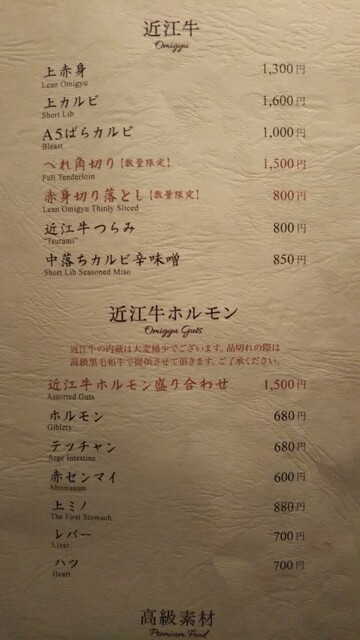 近江牛
Omigyu
上赤身 1,300円
Lean Omigyu
上カルビ 1,600円
Short Lib
A5ばらカルビ 1,000円
Bleast
へれ角切り【数量限定】 1,500円
Full Tenderloin
赤身切り落とし【数量限定】 800円
Lean Omigyu Thinly Sliced
近江牛つらみ 800円
"Tsurami"
中落ちカルビ辛味噌 850円
Short Lib Seasoned Miso
近江牛ホルモン
Omigyu Guts
近江牛の内蔵は大変稀少でございます。品切れの際は
高級黒毛和牛で提供させて頂きます。ご了承ください。
近江牛ホルモン盛り合わせ 1,500円
Assorted Guts
ホルモン 680円
Giblets
テッチャン 680円
Intestine
赤センマイ 600円
Abomasum
上ミノ 880円
The First Stomach
レバー 700円
Liver
ハツ 700円
Heart
高級素材
Premium Food